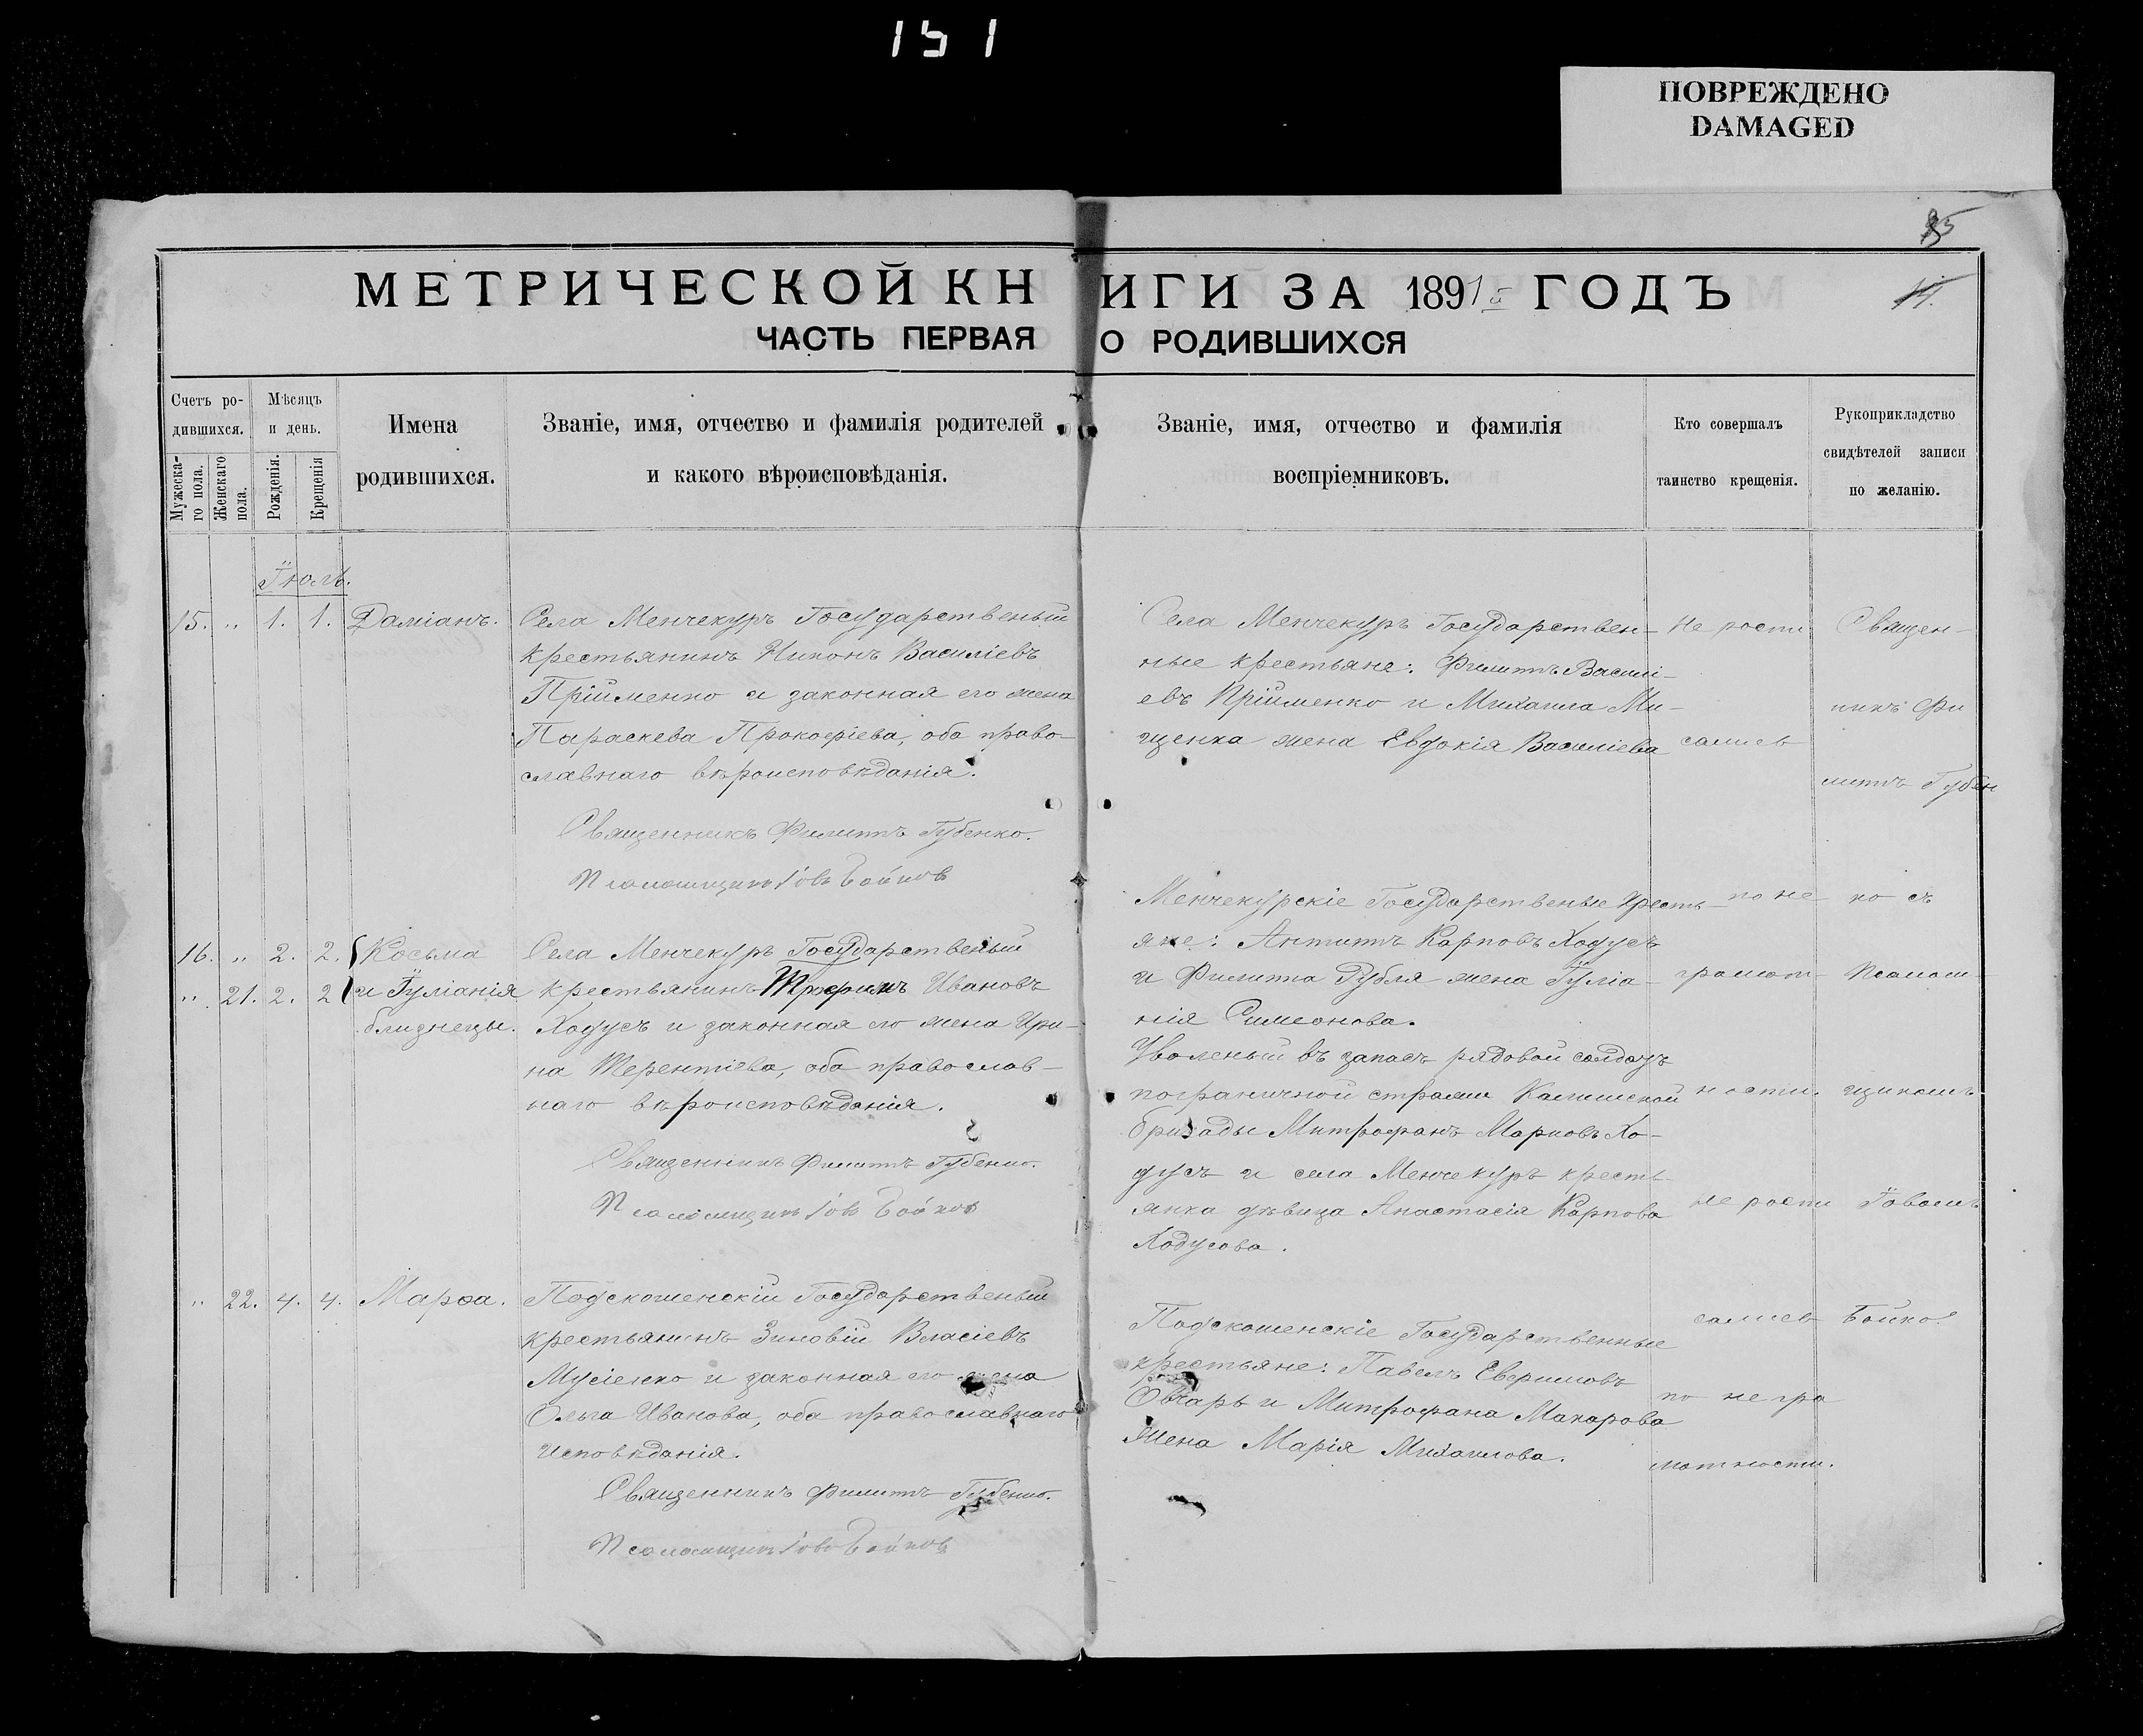 151
ПОВРЕЖДЕНО
DAMAGED
МЕТРИЧЕСКОЙ КНИГИ ЗА 1891й ГОДЪ
ЧАСТЬ ПЕРВАЯ О РОДИВШИХСЯ
Счетъ ро-
дившихся.
Мужеска-
го пола.
Женскаго
пола.
Мѣсяцъ
и день.
Рожденія.
Крещенія
Имена
родившихся.
Званіе, имя, отчество и фамилія родителей
и какого вѣроисповѣданія.
Званіе, имя, отчество и фамилія
воспріемниковъ.
Кто совершалъ
таинство крещенія.
Рукоприкладство
свидѣтелей записи
по желанію.
Іюль.
15. " 1. 1. Даміанъ.
Села Менчекуръ Государственый
крестьянинъ Никонъ Василіевъ
Прійменко и законная его жена
Параскева Прокофіева, оба право-
славнаго вѣроисповѣданія.
Священникъ Филиппъ Губенко.
Псаломщикъ Іовъ Бойков
Села Менчекуръ Государствен-
ные крестьяне: Филиппъ Василі-
евъ Прійменко и Михаила Ми-
щенка жена Евдокія Василіева
16. " 2. 2. Косьма
" 21. 2. 2 и Іуліанія
близнецы.
Села Менчекуръ Государственый
крестьянинъ Трофимъ Ивановъ
Ходусъ и законная его жена Ири-
на Терентіева, оба православ-
наго вѣроисповѣданія.
Священникъ Филиппъ Губенко.
Псаломщикъ Іовъ Бойков
Менчекурскіе Государственые кресть-
яне: Антипъ Карповъ Ходусъ
и Филиппа Рубля жена Іуліа-
нія Симеонова.
Уволеный въ запасъ рядовой солдатъ
пограничной стражи Калишской
бригады Митрофанъ Марковъ Хо-
дусъ и села Менчекуръ кресть-
янка дѣвица Анастасія Карпова
Ходусова.
" 22. 4. 4. Марѳа.
Подскошенскій Государственый
крестьянинъ Зиновій Власіевъ
Мусіенко и законная его жена
Ольга Иванова, оба православнаго
исповѣданія.
Священникъ Филиппъ Губенко.
Псаломщикъ Іовъ Бойков
Подскошенскіе Государственные
крестьяне: Павелъ Евфимовъ
Овчарь и Митрофана Макарова
жена Марія Михаилова.
Не роспи
салисъ
по не
грамот-
ности.
не роспи
салисъ
по не гра
мотности.
Священ-
никъ Фи
липпъ Губен
ко съ
Псалом-
щикомъ
Іовомъ
Бойко